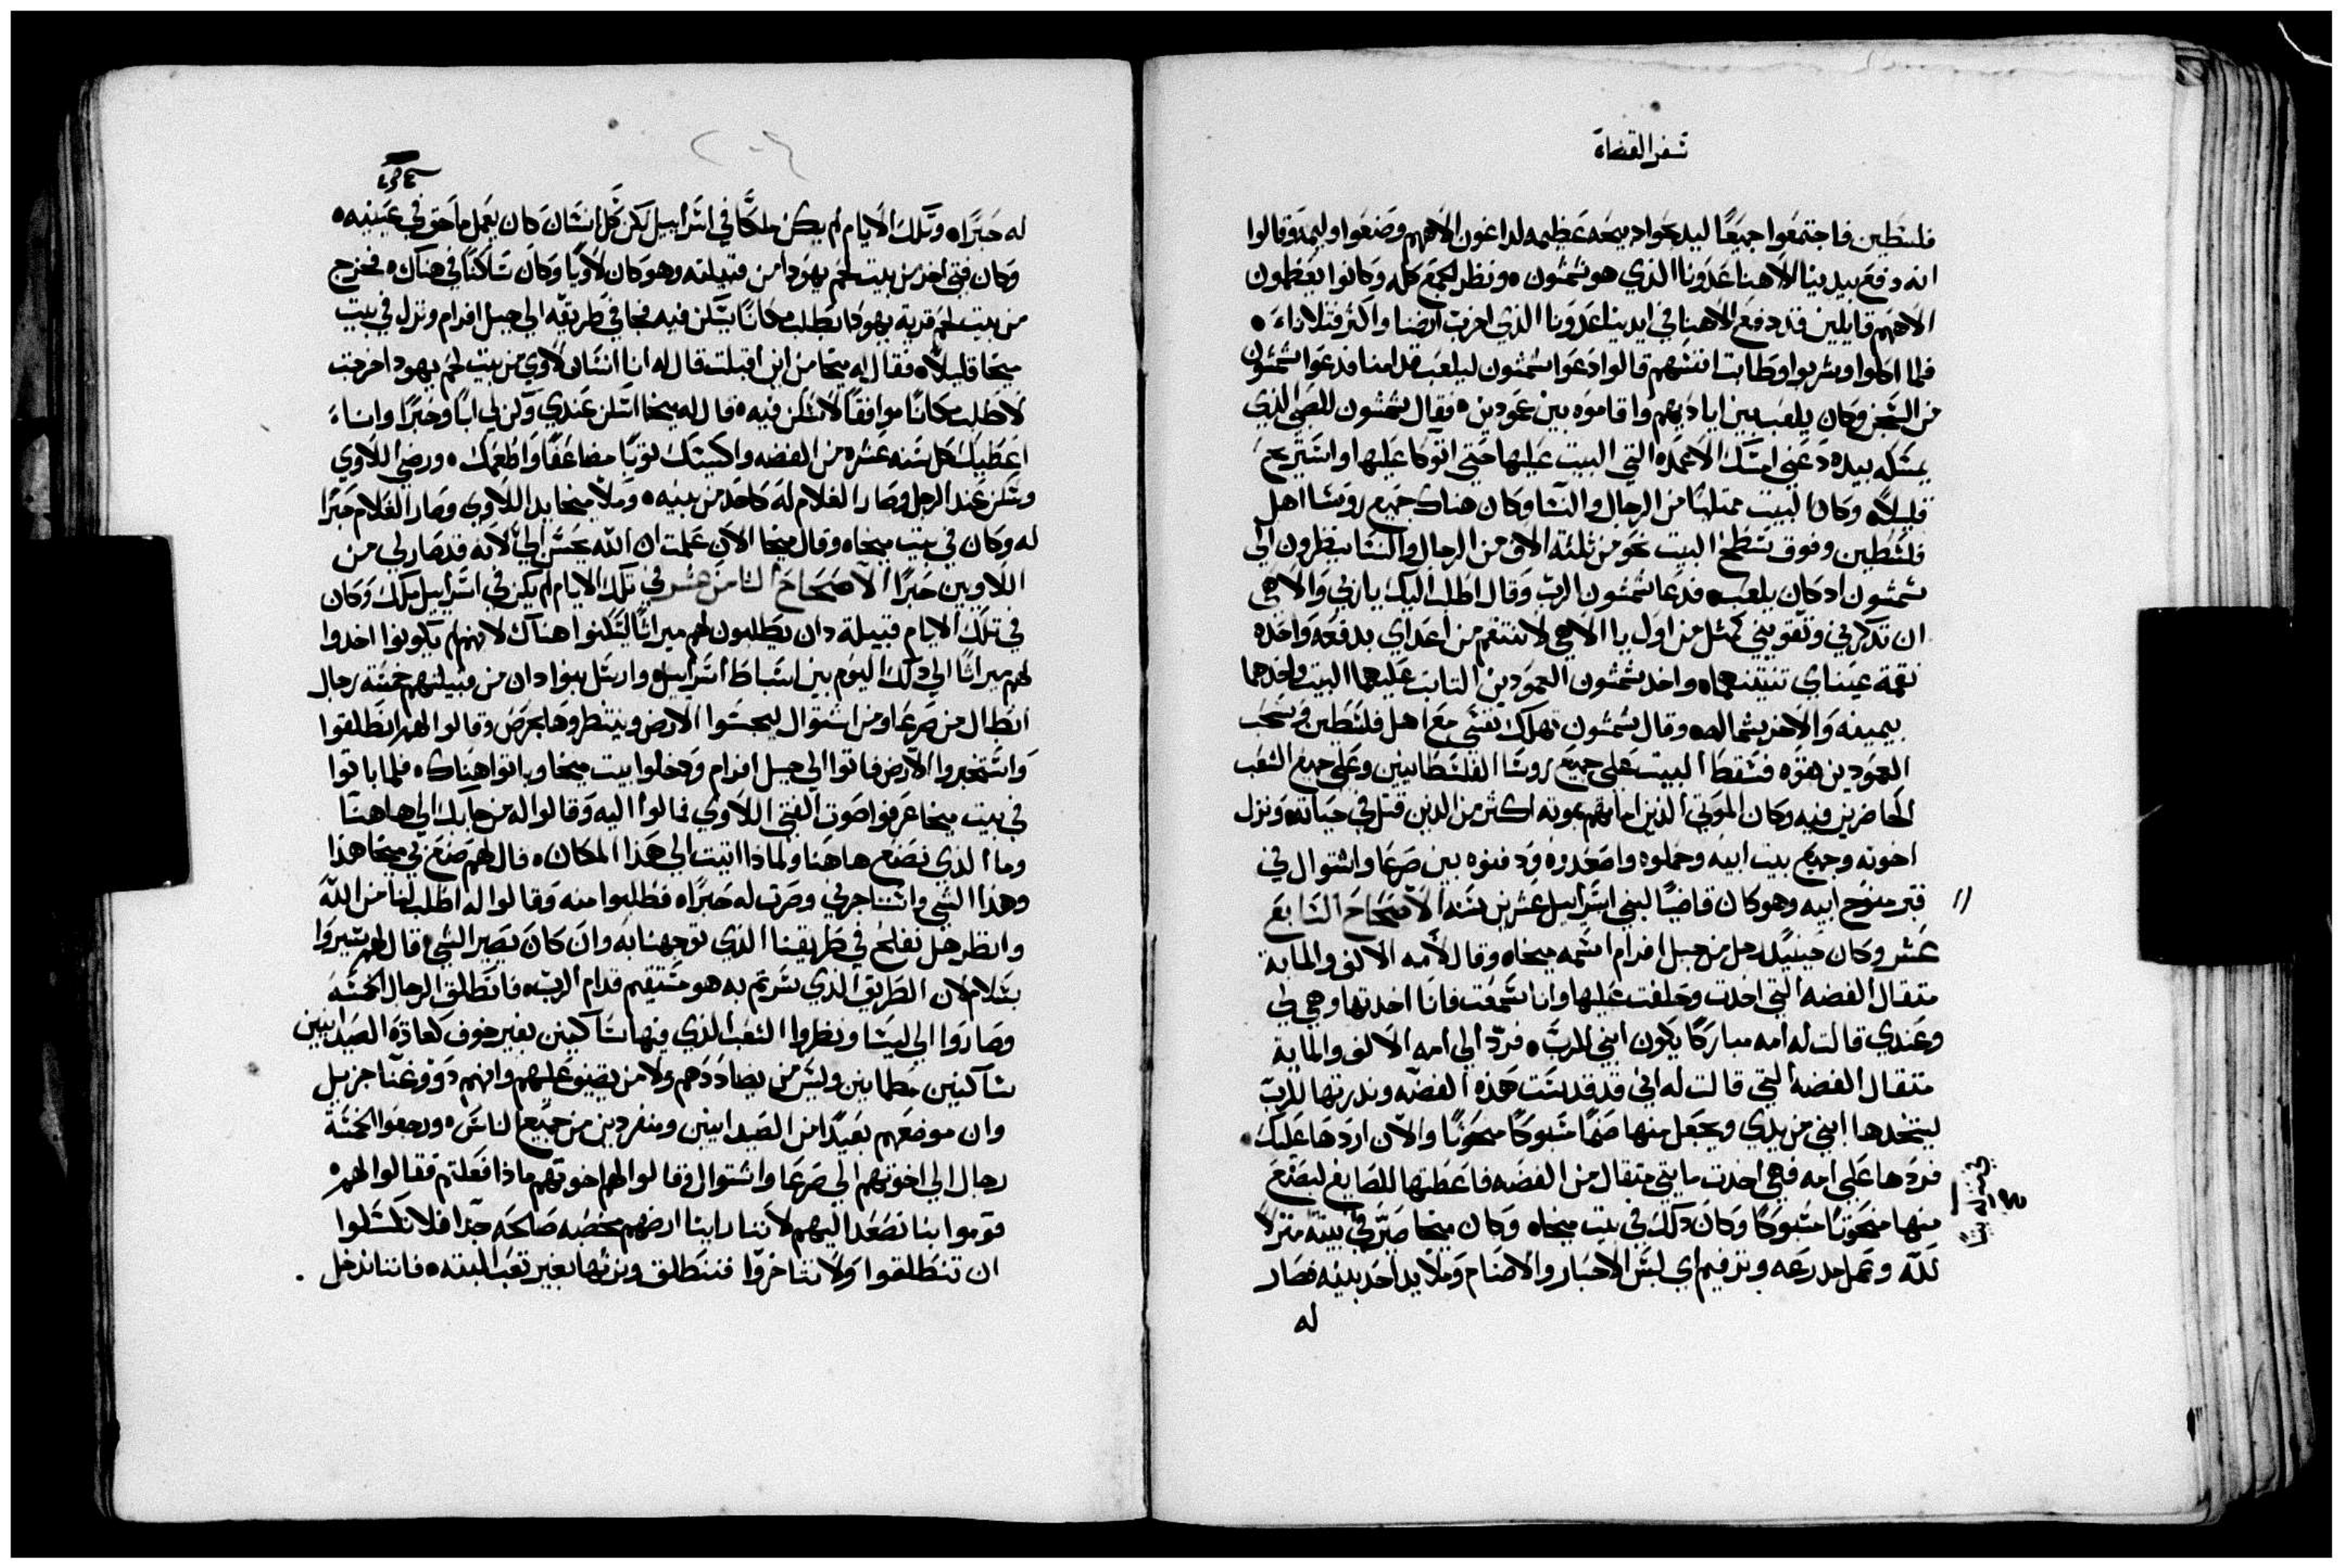 سفر القضاه
فلسطين فاجتمعوا جميعًا ليدبحوا دبيحه عظيمه لداغون الاههم وصنعوا وليمه وقالوا
انه دفع بيدينا الاهنا عدونا الذي هو شمشون ونظر الجمع كله وكانوا يعظمون
الاههم قايلين قد دفع الاهنا في ايدينا عدونا الذي اخرب ارضنا واكثر قتلانا
فلما اكلوا وشربوا وطابت انفسهم قالوا ادعوا شمشون ليلعب قدامنا فدعوا شمشون
من السجن وكان يلعب بين اياديهم واقاموه بين عمودين فقال شمشون للصبي الذي
يمسكه بيده دعني امسك الاعمده التي البيت عليها حتي اتوكا عليها واستريح
قليلاً وكان البيت ممتليًا من الرجال والنسا وكان هناك جميع روسا اهل
فلسطين وفوق سطح البيت نحو من ثلثة الاف من الرجال والنسا ينظرون الي
شمشون اد كان يلعب فدعا شمشون الرب وقال اطلب اليك ياربي والاهي
ان تدكرني وتقويني كمثل من اول يا الاهي لانتقم من اعداي بدفعه واحده
نقمة عيناي تنيتنهما واخد شمشون العمودين التابت عليهما البيت واحدهما
بيمينه والاخر بشماله وقال شمشون تهلك نفسي مع اهل فلسطين وسحب
العمودين بقوه فسقط البيت علي جميع روسا الفلسطانيين وعلي جميع الشعب
الحاضرين فيه وكان الموتي الذين اماتهم بموته اكثر من الدين قتل في حياته ونزل
اخوته وجميع بيت ابيه وحملوه واصعدوه ودفنوه بين صرعا واشتوال في
قبر منوح ابيه وهو كان قاضيًا لبني اسراييل عشرين سنه الاصحاح السابع
عشر وكان حينيد رجل من جبل افرام اسمه ميخا وقال لامه الالف والماية
متقال الفضه التي اخدت وحلفت عليها وانا سمعت فانا اخدتها وهي لي
وعندي قالت له امه مباركًا يكون ابني للرب فرد الي امه الالف والماية
متقال الفضه التي قالت له اني قد قدست هذه الفضه وندرتها للرب
ليتخدها ابني من يدي ويجعل منها صنمًا مسبوكًا منحوتًا والان اردها عليك
فردها علي امه فهي اخدت مايتي متقال من الفضه فاعطتها للصايغ ليصنع
منها منحوتًا مسبوكًا وكان دلك في بيت ميخا وكان ميخا صير في بيته منزلاً
لله وعمل مدرعه وترفيم اي لبس الاحبار والاصنام وملا يد احد بنيه فصار
له
له حبرًا وتلك الايام لم يكن ملكًا في اسراييل لكن كل انسان كان يعمل ما حق في عينيه
وكان فتي اخر من بيت لحم يهودا من قبيلته وهو كان لاويًا وكان ساكنًا في هناك فخرج
من بيت لحم قرية يهودا يطلب مكانًا يسكن فيه فجا في طريقه الي جبل افرام ونزل في بيت
ميخا قليلاً فقال له ميخا من اين اقبلت قال له انا انسان لاوي من بيت لحم يهودا خرجت
لاطلب مكانًا موافقًا لاسكن فيه قال له ميخا اسكن عندي وكن لي ابًا وخبرًا وانا
اعطيك كل سنه عشره من الفضه واكسيتك ثوبًا مضاعفًا واطعمك ورضي اللاوي
وسكن عند الرجل وصار الغلام له كاحد من بنيه وملا ميخا يد اللاوي وصار الغلام حبرًا
له وكان في بيت ميخا وقال ميخا الان علمت ان الله يحسن الي لانه قد صار لي من
اللاويين حبرًا الاصحاح الثامن عشر في تلك الايام لم يكن في اسراييل ملك وكان
في تلك الايام قبيلة دان يطلبون لهم ميراثًا ليسكنوا هناك لانهم لم يكونوا اخدوا
لهم ميراثًا الي دلك اليوم بين اسباط اسراييل وارسل بنوا دان من قبيلتهم خمسة رجال
ابطال من صرعا ومن اشتوال ليجسوا الارض وينتظروها بحرص وقالوا لهم انطلقوا
واستخبروا الارض فاتوا الي جبل افرام ودخلوا بيت ميخا وباتوا هناك فلما باتوا
في بيت ميخا عرفوا صوت الفتي اللاوي فمالوا اليه وقالوا له من جابك الي هاهنا
وما الذي تصنع هاهنا ولمادا اتيت الي هذا المكان قال لهم صنع بي ميخا هذا
وهذا الشي واستاجرني وصرت له حبرًا فطلبوا منه وقالوا له اطلب لنا من الله
وانظر هل نفلح في طريقنا الذي توجهنا به وان كان يصير الشي قال لهم سيروا
بسلام لان الطريق الذي سرتم به هو مستقيم قدام الرب فانطلق الرجال الخمسه
وصاروا الي ليسا ونظروا الشعب الذي فيها ساكنين بغير خوف كعادة الصيدانيين
ساكنين مطمانين وليس من يضاددهم ولا من يضيق عليهم وانهم دوو غنا جزيل
وان موضعهم بعيدًا من الصيدانيين ومنفردين من جميع الناس ورجعوا الخمسة
رجال الي اخوتهم الي صرعا واشتوال وقالوا لهم اخوتهم مادا فعلتم فقالوا لهم
قوموا بنا نصعد اليهم لاننا راينا ارضهم مخصبه صالحه جدًا فلا تكسلوا
ان تنطلقوا ولا تتاخروا فننطلق ونرثها بغير تعب البته فاننا ندخل